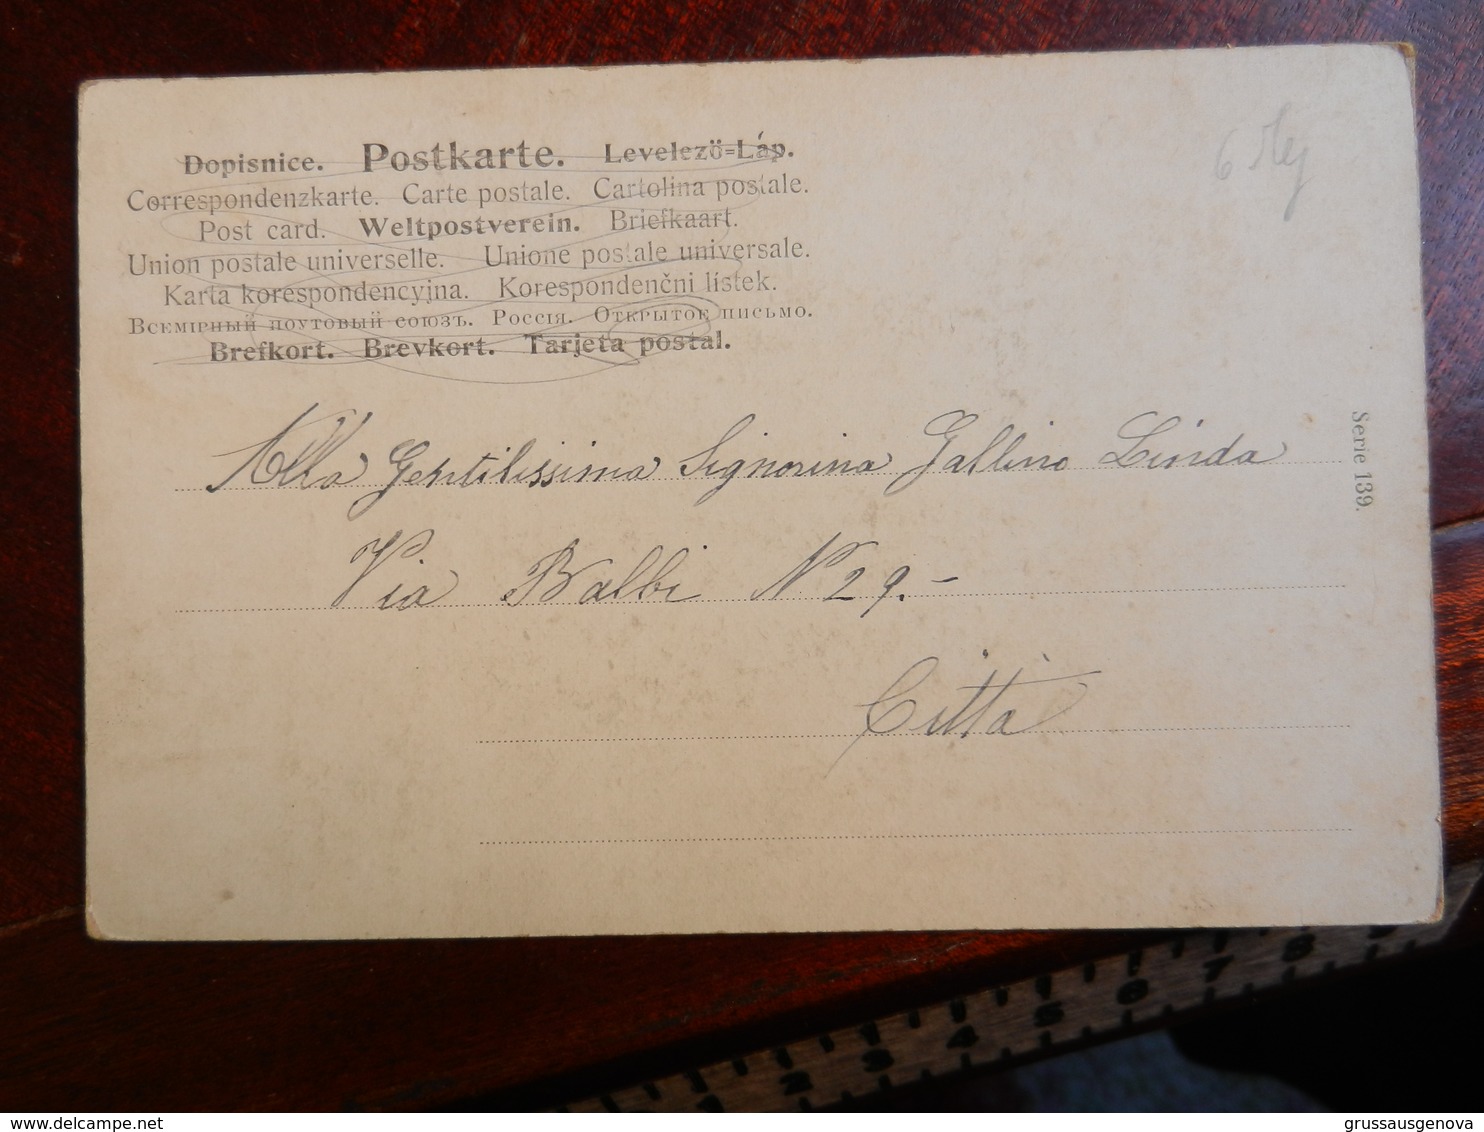 Dopisnice. Postkarte. Levelező=Láp.
Correspondenzkarte. Carte postale. Cartolina postale.
Post card. Weltpostverein. Briefkaart.
Union postale universelle. Unione postale universale.
Karta korespondencyjna. Korespondenčni lístek.
Всемірный поутовый союзъ. Россія. Открытое письмо.
Brefkort. Brevkort. Tarjeta postal.
6
Serie 139.
Alla Gentilissima Signorina Gallino Linda
Via Balbi N° 29.-
Città
1 2 3 4 5 6 7 8 9
grussausgenova